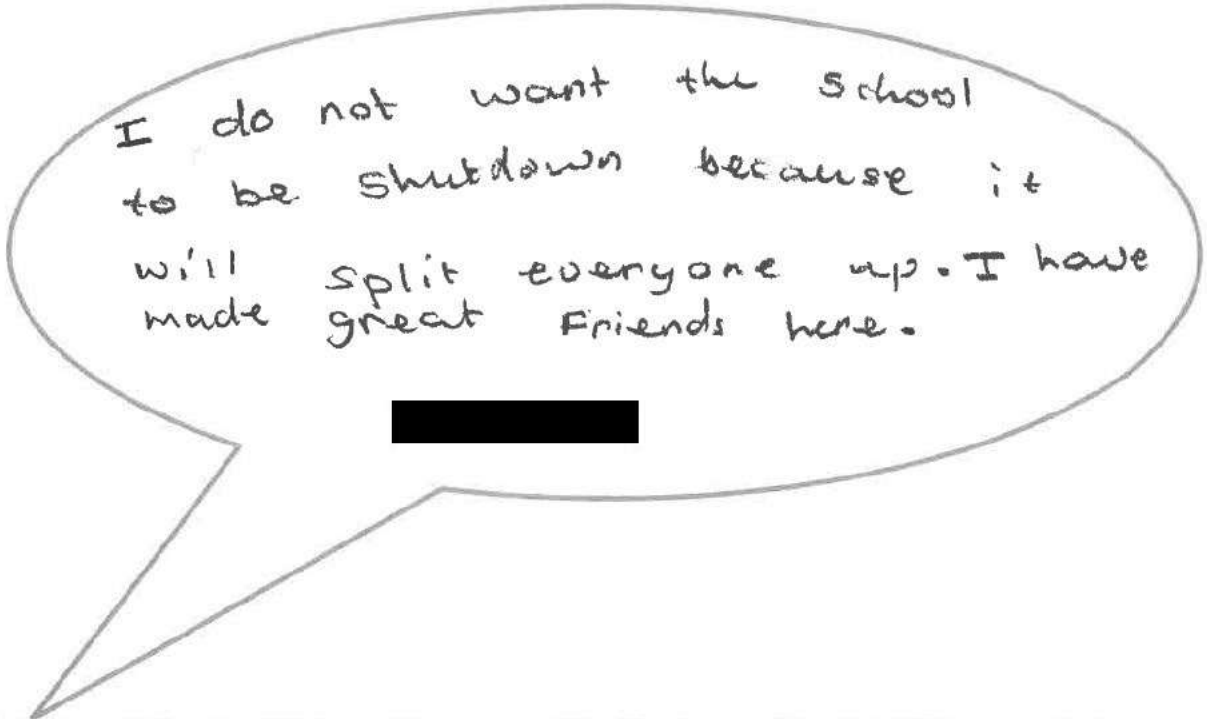 I do not want the school
to be shutdown because it
will split everyone up. I have
made great Friends here.